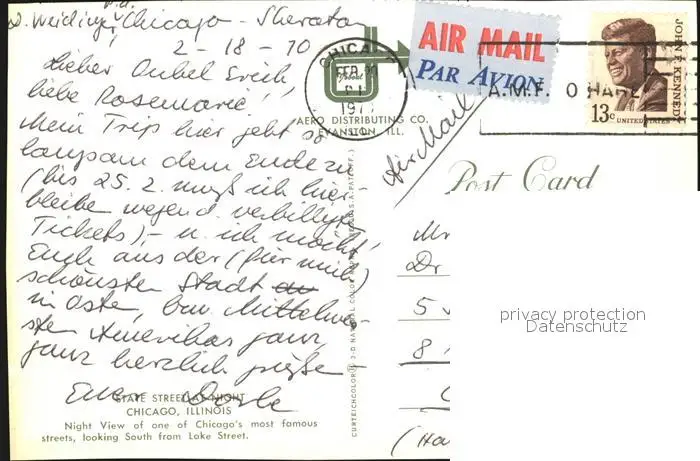 Chicago - Sheraton
2 - 18 - 70
Lieber Onkel Erich,
liebe Rosemarie!
Mein Trip hier geht so
langsam dem Ende zu
(bis 25. 2. muß ich hier-
bleiben wegen d. verbilligten
Tickets), - u. ich möcht'
Euch aus der (für mich)
schönsten Stadt
im Osten, bzw. Mittelwe-
sten Amerikas ganz,
ganz herzlich grüßen -
Euer
STATE STREET AT NIGHT
CHICAGO, ILLINOIS
Night View of one of Chicago's most famous
streets, looking South from Lake Street.
AERO DISTRIBUTING CO.
EVANSTON, ILL.
CHICAGO
AIR MAIL
PAR AVION
A.M.F. O'HARE
JOHN F. KENNEDY
13c UNITED STATES
Air Mail
Post Card
Dr
5
8
privacy protection
Datenschutz